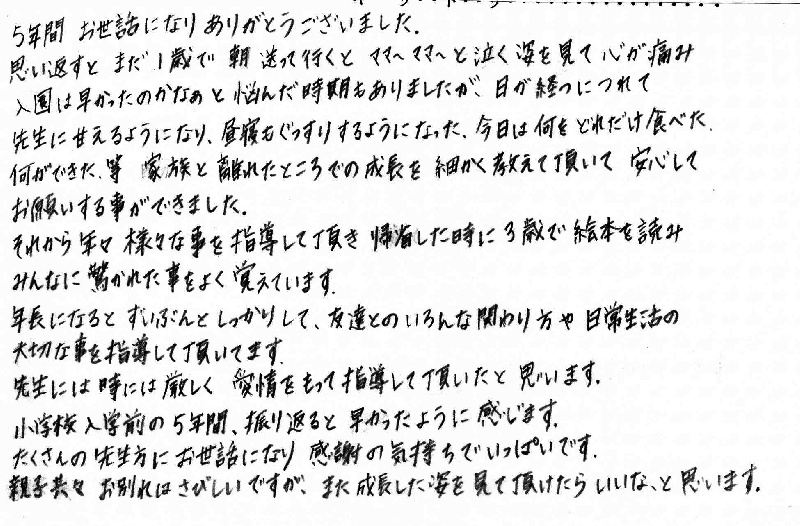 5年間 お世話になり ありがとうございました.
思い返すと まだ 1歳で 朝 送って行くと ママ〜ママ〜と泣く姿を見て 心が痛み
入園は早かったのかなぁと 悩んだ時期もありましたが、日が経つにつれて
先生に甘えるようになり、昼寝もぐっすりするようになった、今日は何をどれだけ食べた.
何ができた、等 家族と離れたところでの成長を 細かく教えて頂いて 安心して
お願いする事ができました.
それから年々 様々な事を指導して頂き 帰省した時に 3歳で絵本を読み
みんなに驚かれた事をよく覚えています.
年長になると ずいぶんとしっかりして、友達とのいろんな関わり方や 日常生活の
大切な事を指導して頂いてます.
先生には 時には厳しく 愛情をもって指導して頂いたと思います.
小学校入学前の5年間、振り返ると早かったように感じます.
たくさんの先生方にお世話になり 感謝の気持ちでいっぱいです.
親子共々 お別れはさびしいですが、また成長した姿を見て頂けたらいいな、と思います.